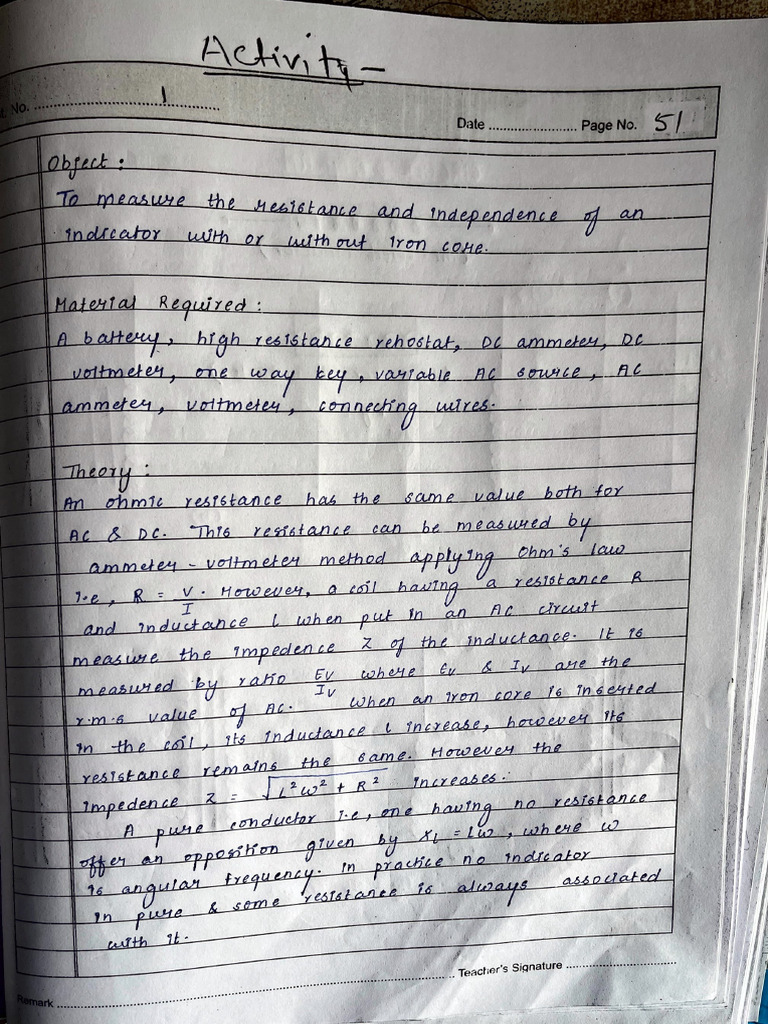 Activity -
t. No. ........ 1 ........
Date ........................ Page No. 51
Object :
To measure the resistance and independence of an
indicator with or with out iron core.
Material Required :
A battery, high resistance rehostat, DC ammeter, DC
voltmeter, one way key, variable AC source, AC
ammeter, voltmeter, connecting wires.
Theory :
An ohmic resistance has the same value both for
AC & DC. This resistance can be measured by
ammeter - voltmeter method applying Ohm's law
i.e, R = V/I. However, a coil having a resistance R
and inductance L when put in an AC circuit
measure the impedence Z of the inductance. It is
measured by ratio Ev/Iv where Ev & Iv are the
r.m.s value of AC. When an iron core is inserted
in the coil, its inductance L increase, however its
resistance remains the same. However the
impedence Z = √L²ω² + R² increases.
A pure conductor i.e, one having no resistance
offer an opposition given by XL = Lω, where ω
is angular frequency. In practice no indicator
in pure & some resistance is always associated
with it.
Teacher's Signature ........................
Remark ........................